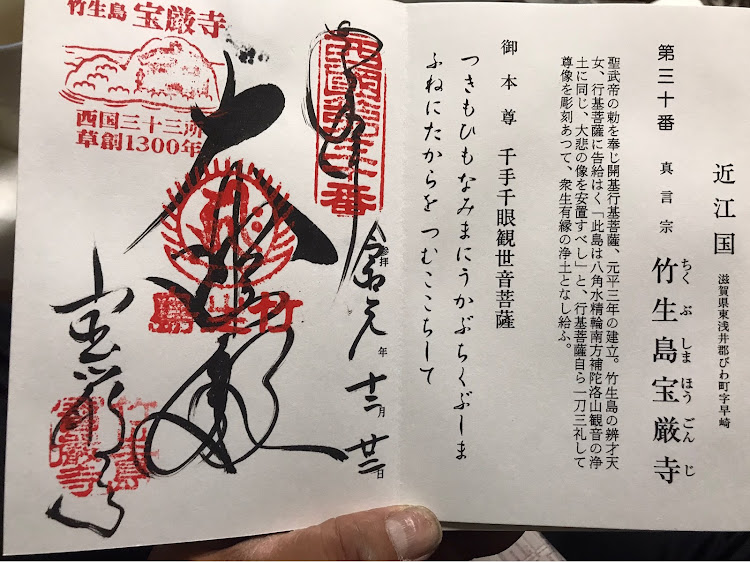 近江国 滋賀県東浅井郡びわ町字早崎
第三十番 真言宗 竹生島宝厳寺
ちくぶしまほうごんじ
聖武帝の勅を奉じ開基行基菩薩、元平三年の建立。竹生島の辨才天
女、行基菩薩に告給はく「此島は八角水精輪南方補陀洛山観音の浄
土に同じ、大悲の像を安置すべし」と、行基菩薩自ら一刀三礼して
尊像を彫刻あつて、衆生有縁の浄土となし給ふ。
御本尊 千手千眼観世音菩薩
つきもひもなみまにうかぶちくぶしま
ふねにたからを つむここちして
西國第三十番
参拝
令元年十二月廿二日
竹生島 宝厳寺
西国三十三所
草創1300年
大悲殿
竹生島
宝厳寺
竹生島
寳厳寺